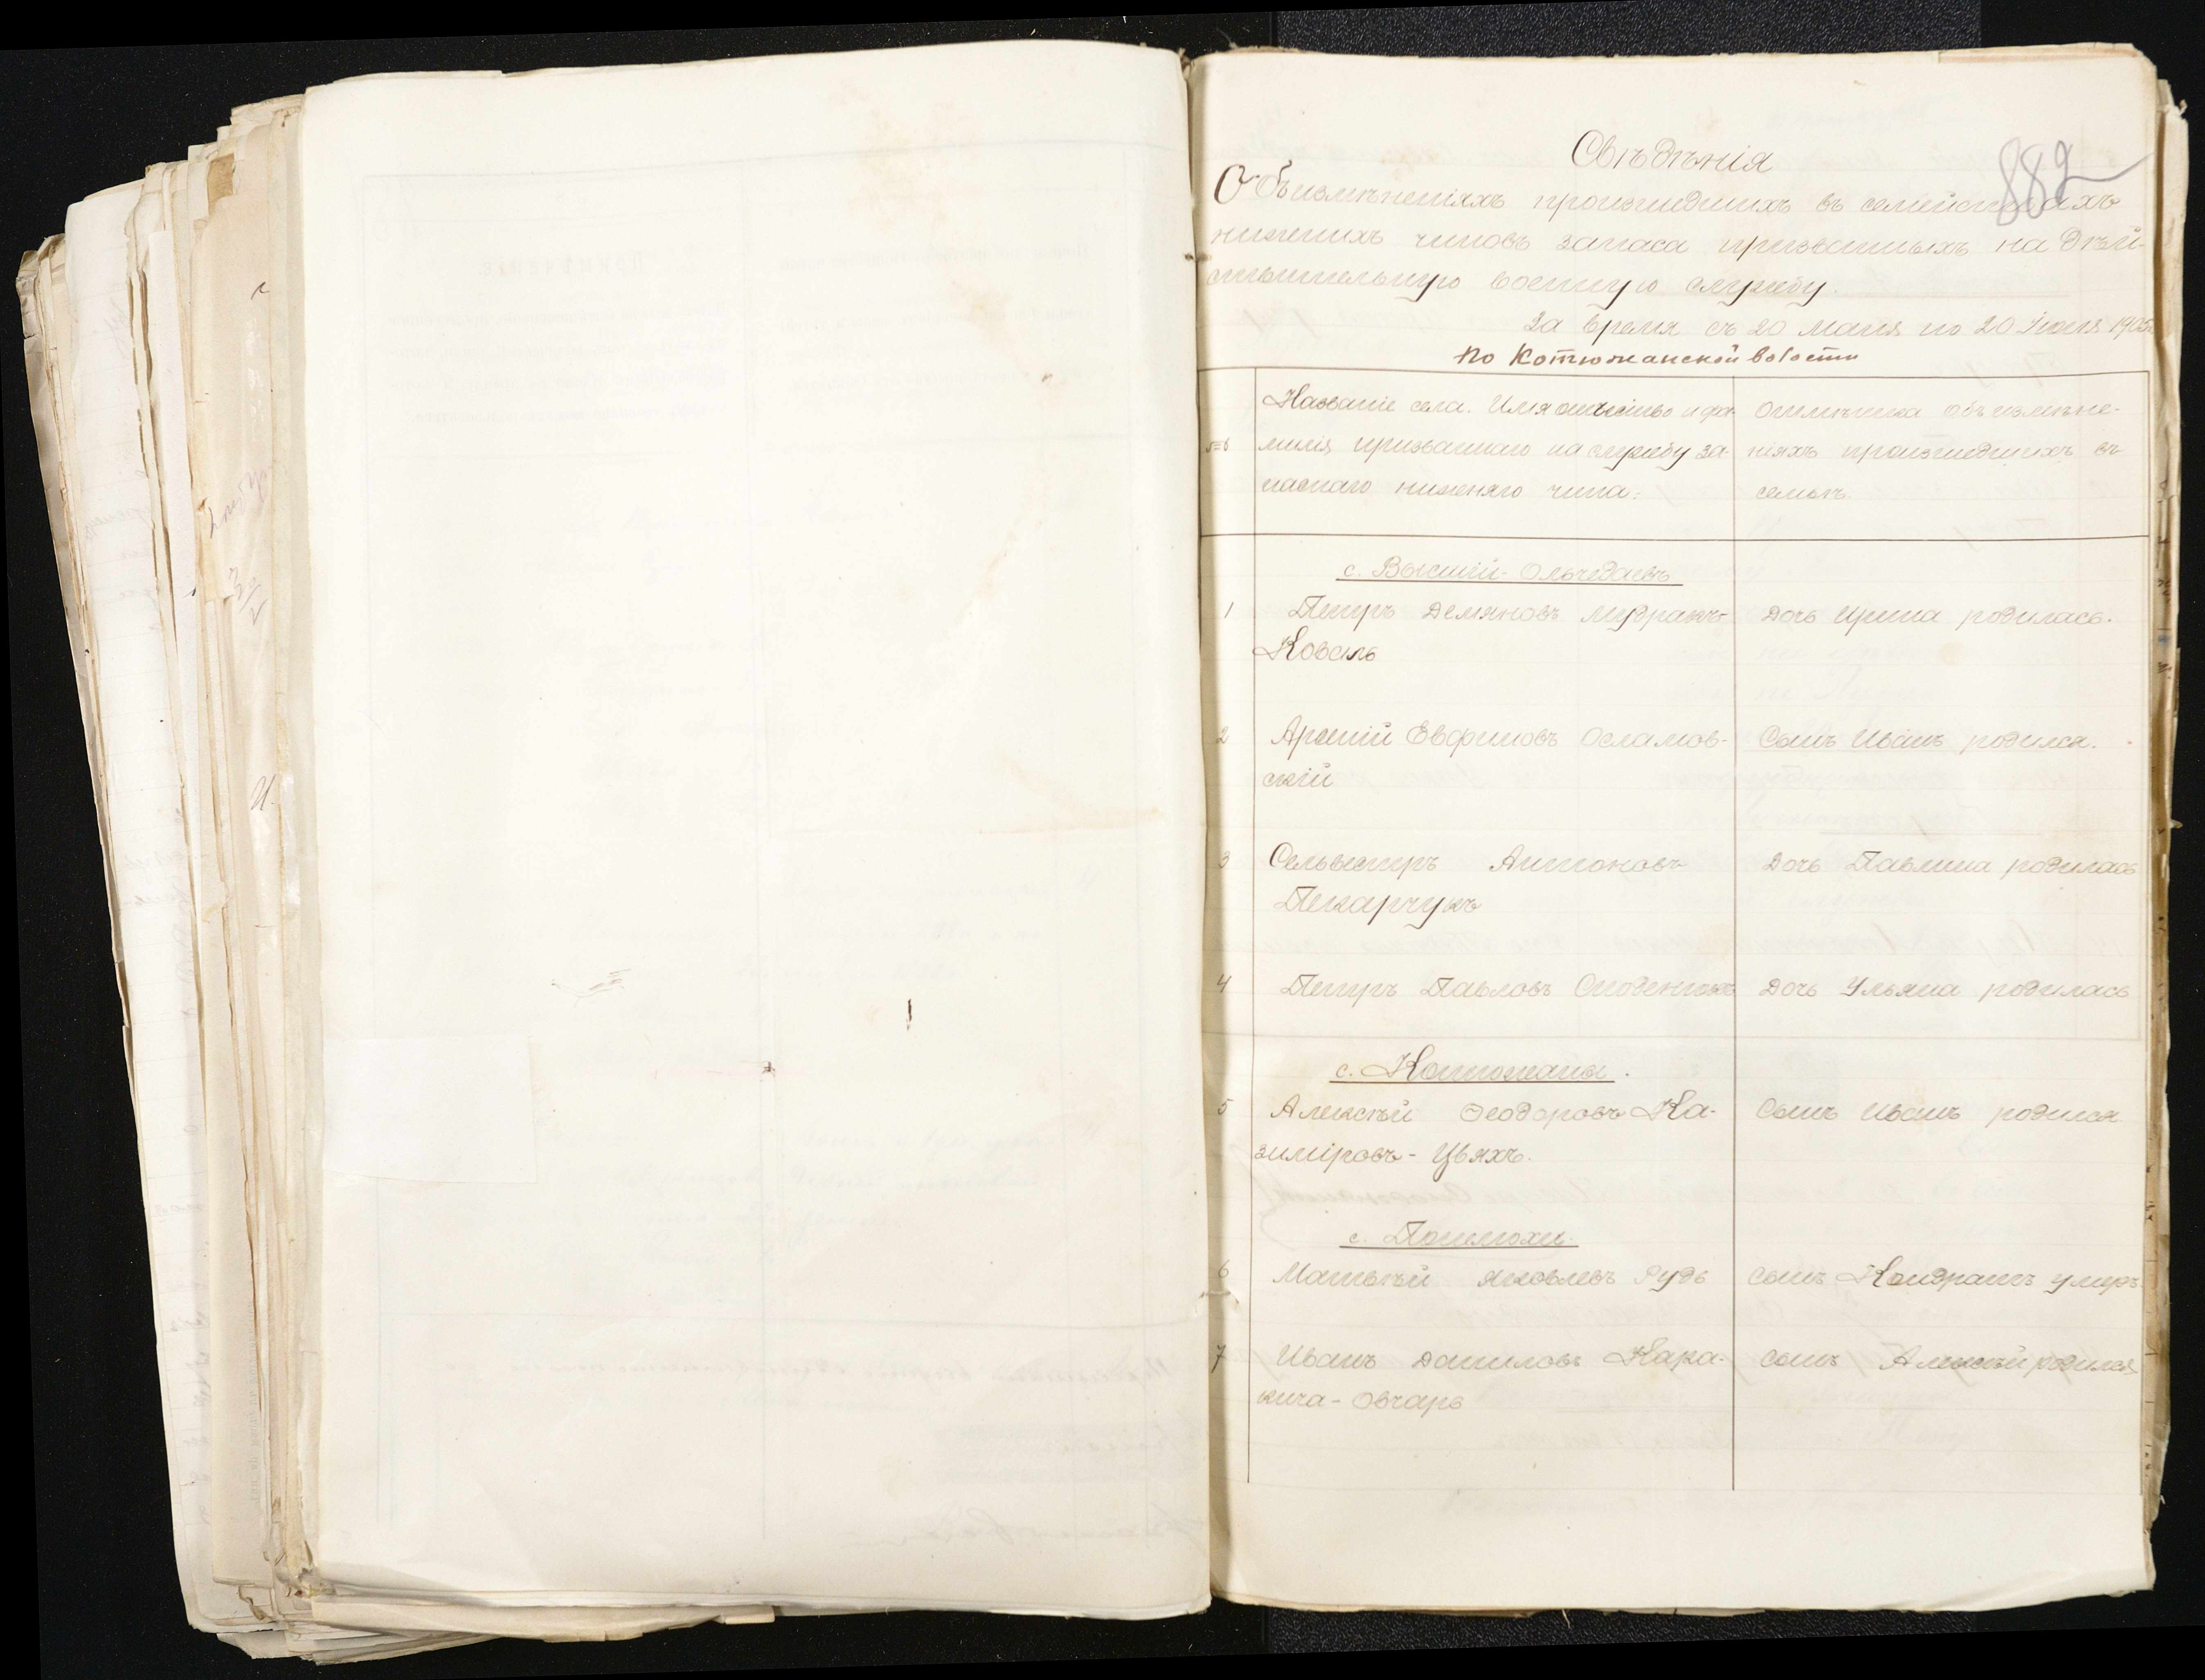 Свѣдѣнія
882
Объ измѣненіяхъ происшедшихъ въ семействахъ
нижнихъ чиновъ запаса призванныхъ на дѣй-
ствительную военную службу.
За время съ 20 Мая по 20 Іюня 1905
по Котюжанской волости
Названіе села. Имя отчество и фа-
милія призваннаго на службу за-
паснаго нижняго чина:
Отмѣтка объ измѣне-
ніяхъ происшедшихъ въ
семьѣ.
с. Высшій-Ольчедаевъ
1 Петръ Демяновъ Мудракъ- Дочь Ирина родилась.
Коваль
2 Арсеній Евфимовъ Осламов- Сынъ Иванъ родился.
скій
3 Сельвестръ Антоновъ Дочь Павлина родилась
Пекарчукъ
4 Петръ Павловъ Дочь Ульяна родилась
с. Котюжаны.
5 Алексѣй Феодоровъ Ка- Сынъ Иванъ родился
зиміровъ-Цвяхъ.
с. Попелюхи.
6 Матвѣй Яковлевъ Рудь сынъ Кондратъ умеръ
7 Иванъ Даниловъ Кара- сынъ Алексѣй родился
кича-Овчаръ